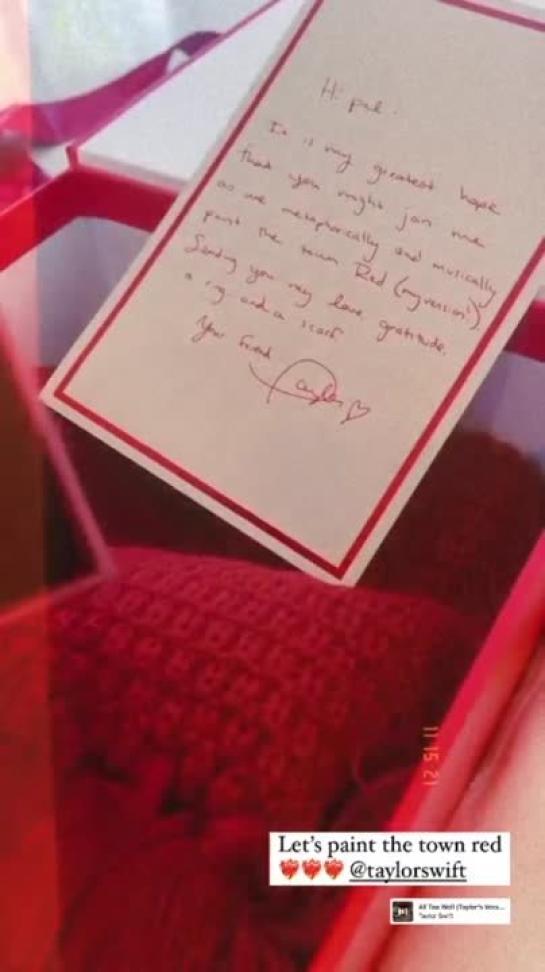 Hi pal.
It is my greatest hope
that you might join me
as we metaphorically and musically
paint the town Red (my version).
Sending you my love, gratitude,
a ring and a scarf.
Your friend
Taylor
11 15 21
Let's paint the town red
❤️‍🔥❤️‍🔥❤️‍🔥 @taylorswift
All Too Well (Taylor's Vers...
Taylor Swift